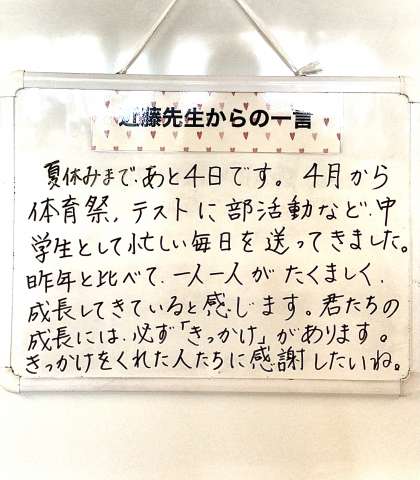 近藤先生からの一言
夏休みまで、あと4日です。4月から
体育祭、テストに部活動など、中
学生として忙しい毎日を送ってきました。
昨年と比べて、一人一人がたくましく、
成長してきていると感じます。君たちの
成長には、必ず「きっかけ」があります。
きっかけをくれた人たちに感謝したいね。